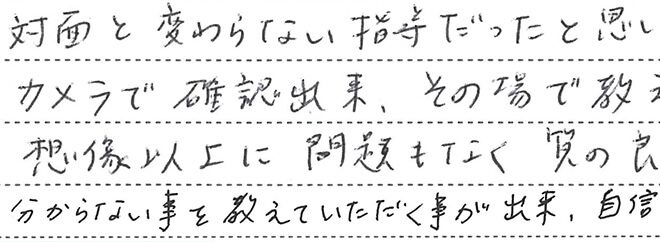 対面と変わらない指導だったと思い
カメラで確認出来、その場で教え
想像以上に問題もなく質の良
分からない事を教えていただく事が出来、自信